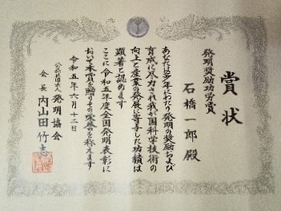 賞状
発明奨励功労賞
石橋一郎殿
あなたは多年にわたり発明の奨励および
育成に尽力され我が国科学技術の
向上と産業の発展に寄与した功績は
顕著と認めます
ここに令和五年度全国発明表彰に
おいて本賞を贈りその栄誉を称えます
令和五年六月十二日
公益社団法人発明協会
会長内山田竹志